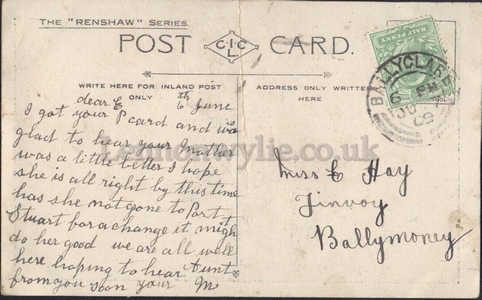 THE "RENSHAW" SERIES.
POST CARD.
C.I.C.L.
WRITE HERE FOR INLAND POST
ONLY
ADDRESS ONLY WRITTEN
HERE
HALF PENNY
BALLYCLARE
6 PM
JU
09
dear E 6th June
I got your P card and was
glad to hear your Mother
was a little better I hope
she is all right by this time
has she not gone to Port
Stuart for a change it might
do her good we are all well
here hoping to hear Aunt
from you soon your M
Miss E Hay
Finvoy
Ballymoney
lennonwylie.co.uk